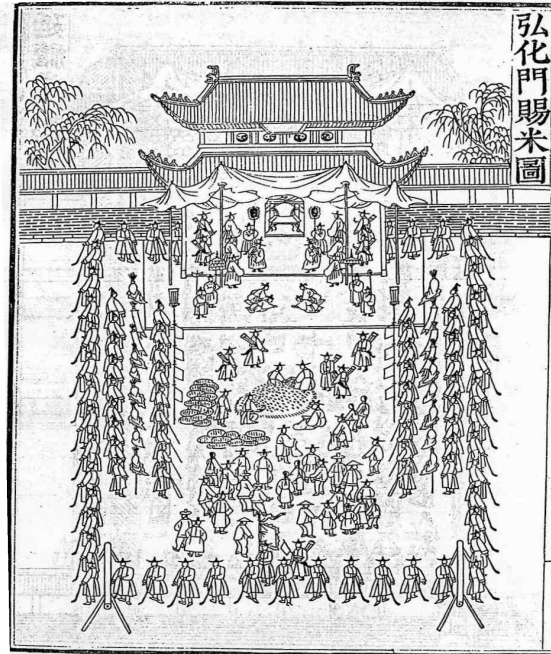 弘化門賜米圖